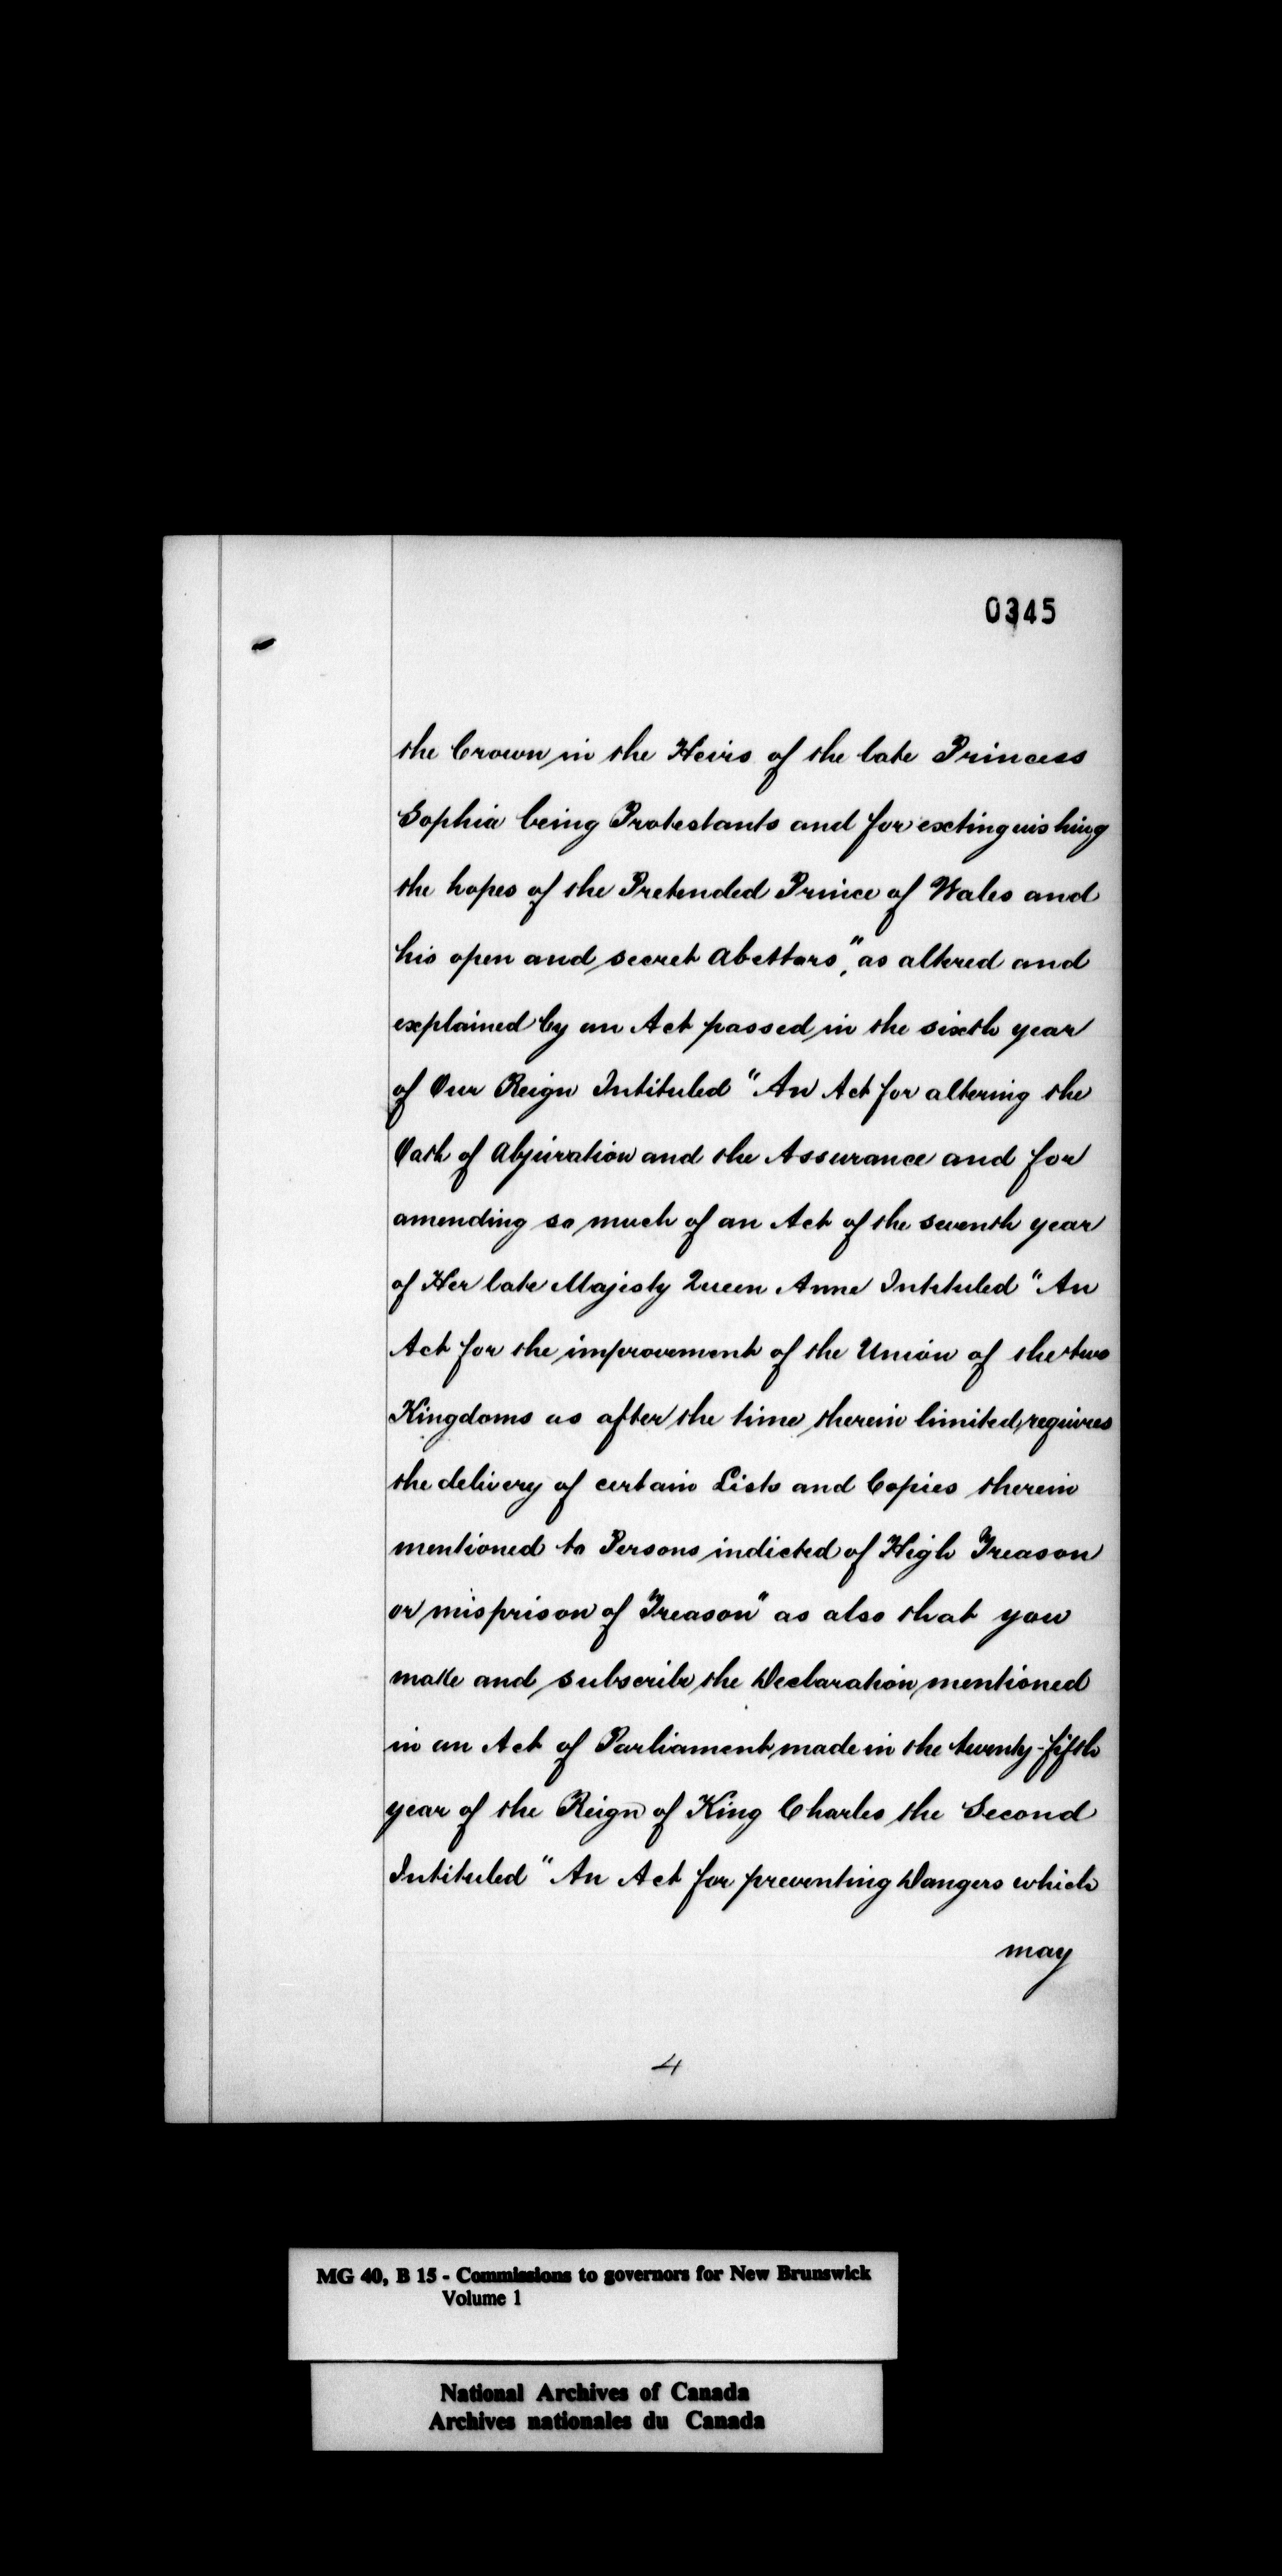 0345
the Crown in the Heirs of the late Princess
Sophia being Protestants and for extinguishing
the hopes of the Pretended Prince of Wales and
his open and secret Abettors", as altered and
explained by an Act passed in the sixth year
of Our Reign Intituled "An Act for altering the
Oath of Abjuration and the Assurance and for
amending so much of an Act of the seventh year
of Her late Majesty Queen Anne Intituled "An
Act for the improvement of the Union of the two
Kingdoms as after the time therein limited, requires
the delivery of certain Lists and Copies therein
mentioned to Persons indicted of High Treason
or misprison of Treason" as also that you
make and subscribe the Declaration mentioned
in an Act of Parliament made in the twenty-fifth
year of the Reign of King Charles the Second
Intituled "An Act for preventing Dangers which
may
4
MG 40, B 15 - Commissions to governors for New Brunswick
Volume 1
National Archives of Canada
Archives nationales du Canada